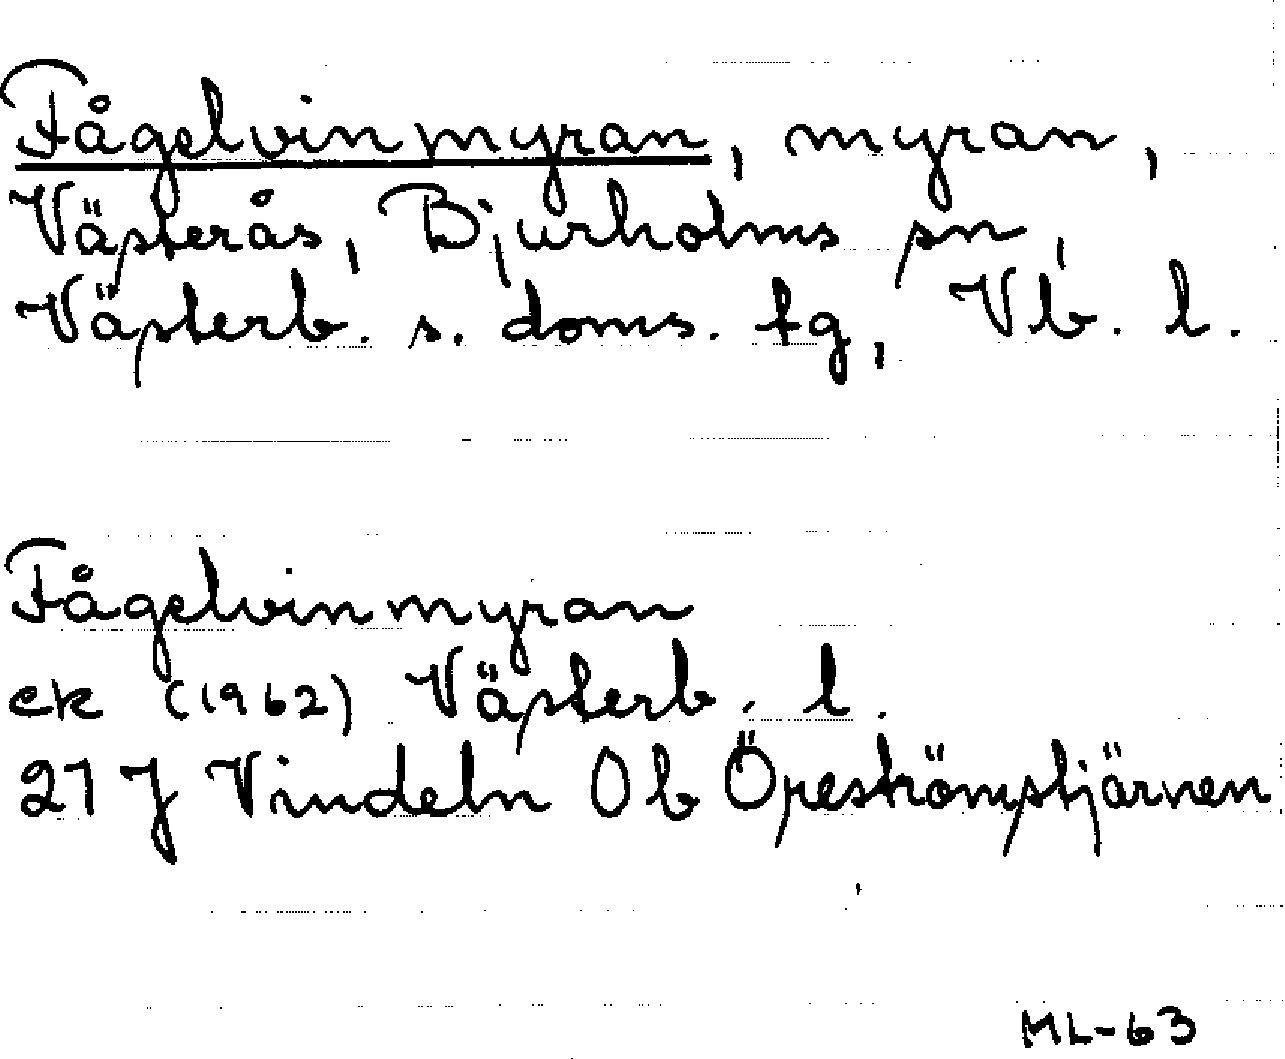 Fågelvinmyran, myran,
Västerås, Bjurholms sn,
Västerb. s. doms. tg, Vb. l.
Fågelvinmyran
ek (1962) Västerb. l.
21 J Vindeln 0 b Öreströmstjärnen
ML-63